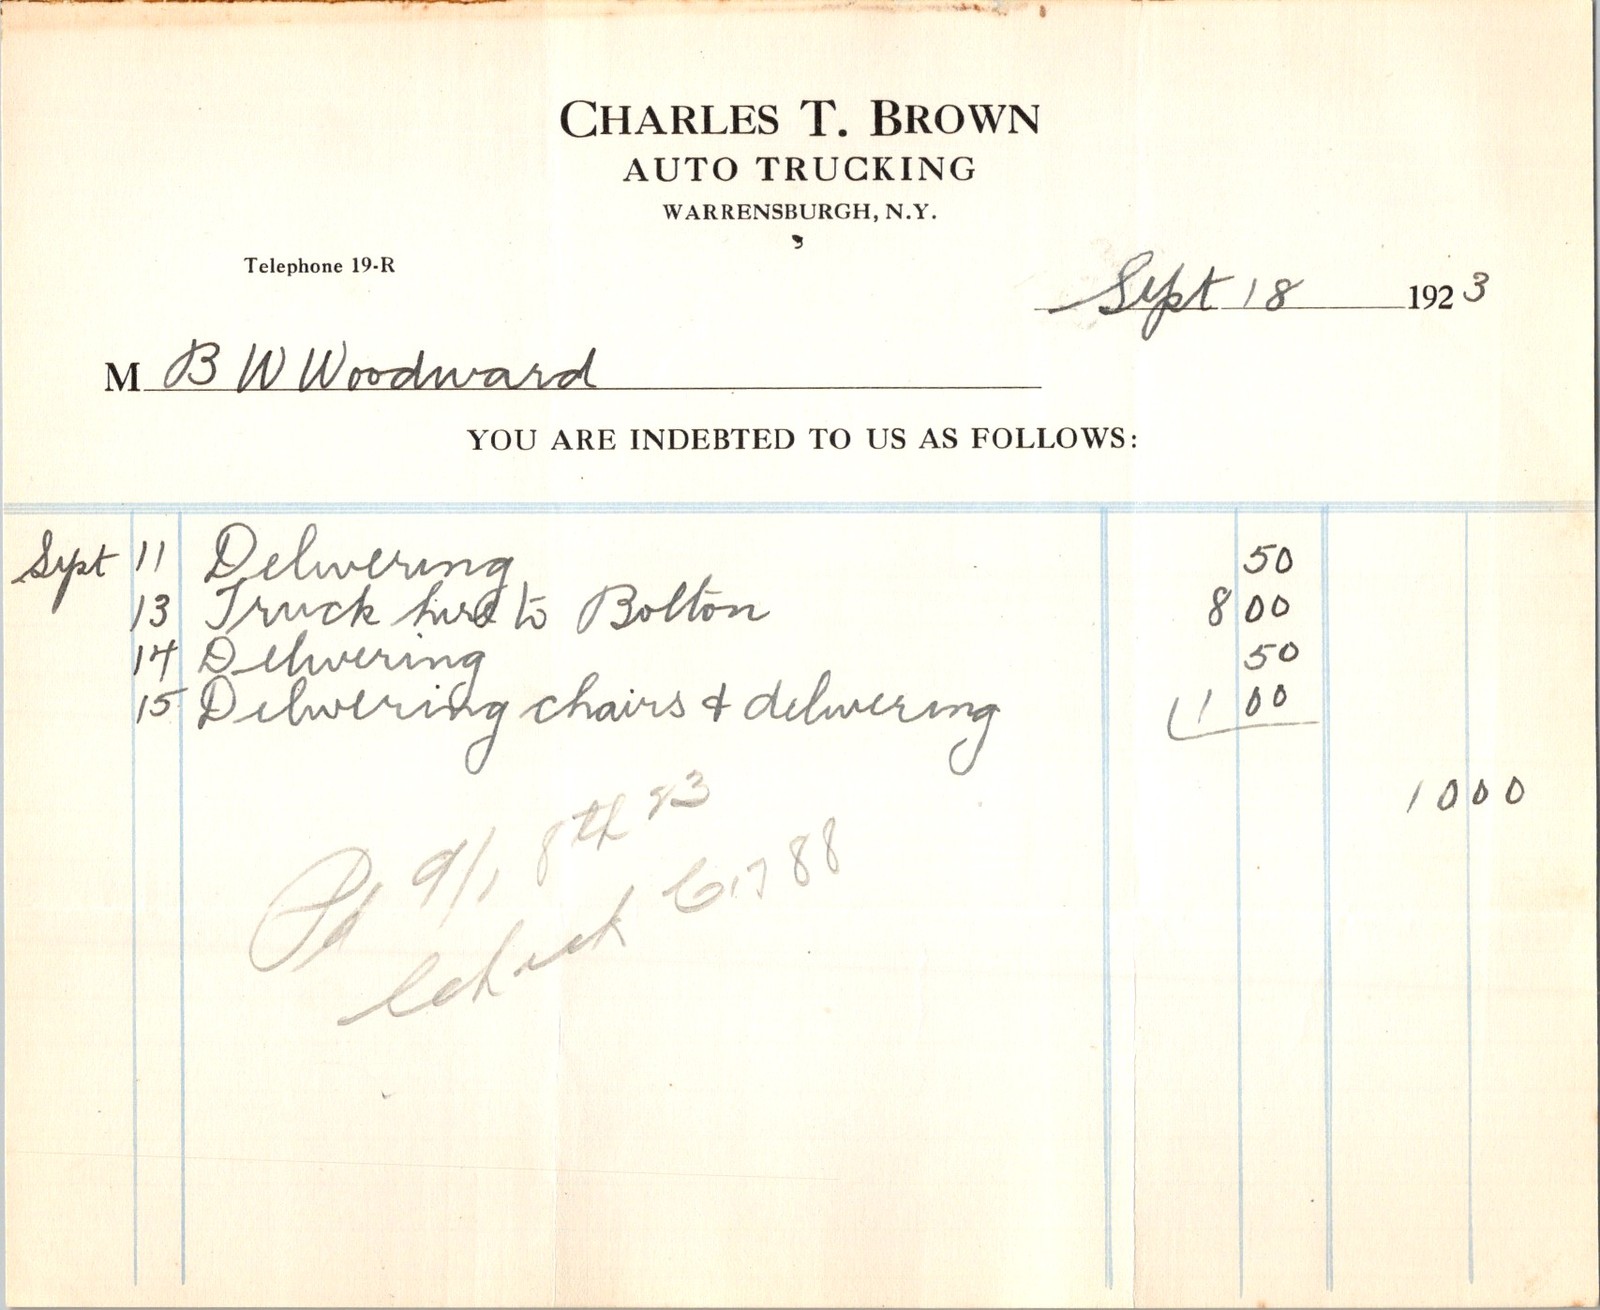 CHARLES T. BROWN
AUTO TRUCKING
WARRENSBURGH, N.Y.
Telephone 19-R
Sept 18 1923
M B W Woodward
YOU ARE INDEBTED TO US AS FOLLOWS:
Sept 11 Delivering 50
13 Truck hire to Bolton 8 00
14 Delivering 50
15 Delivering chairs & delivering 1 00
10 00
Pd 9/18th 23
Check